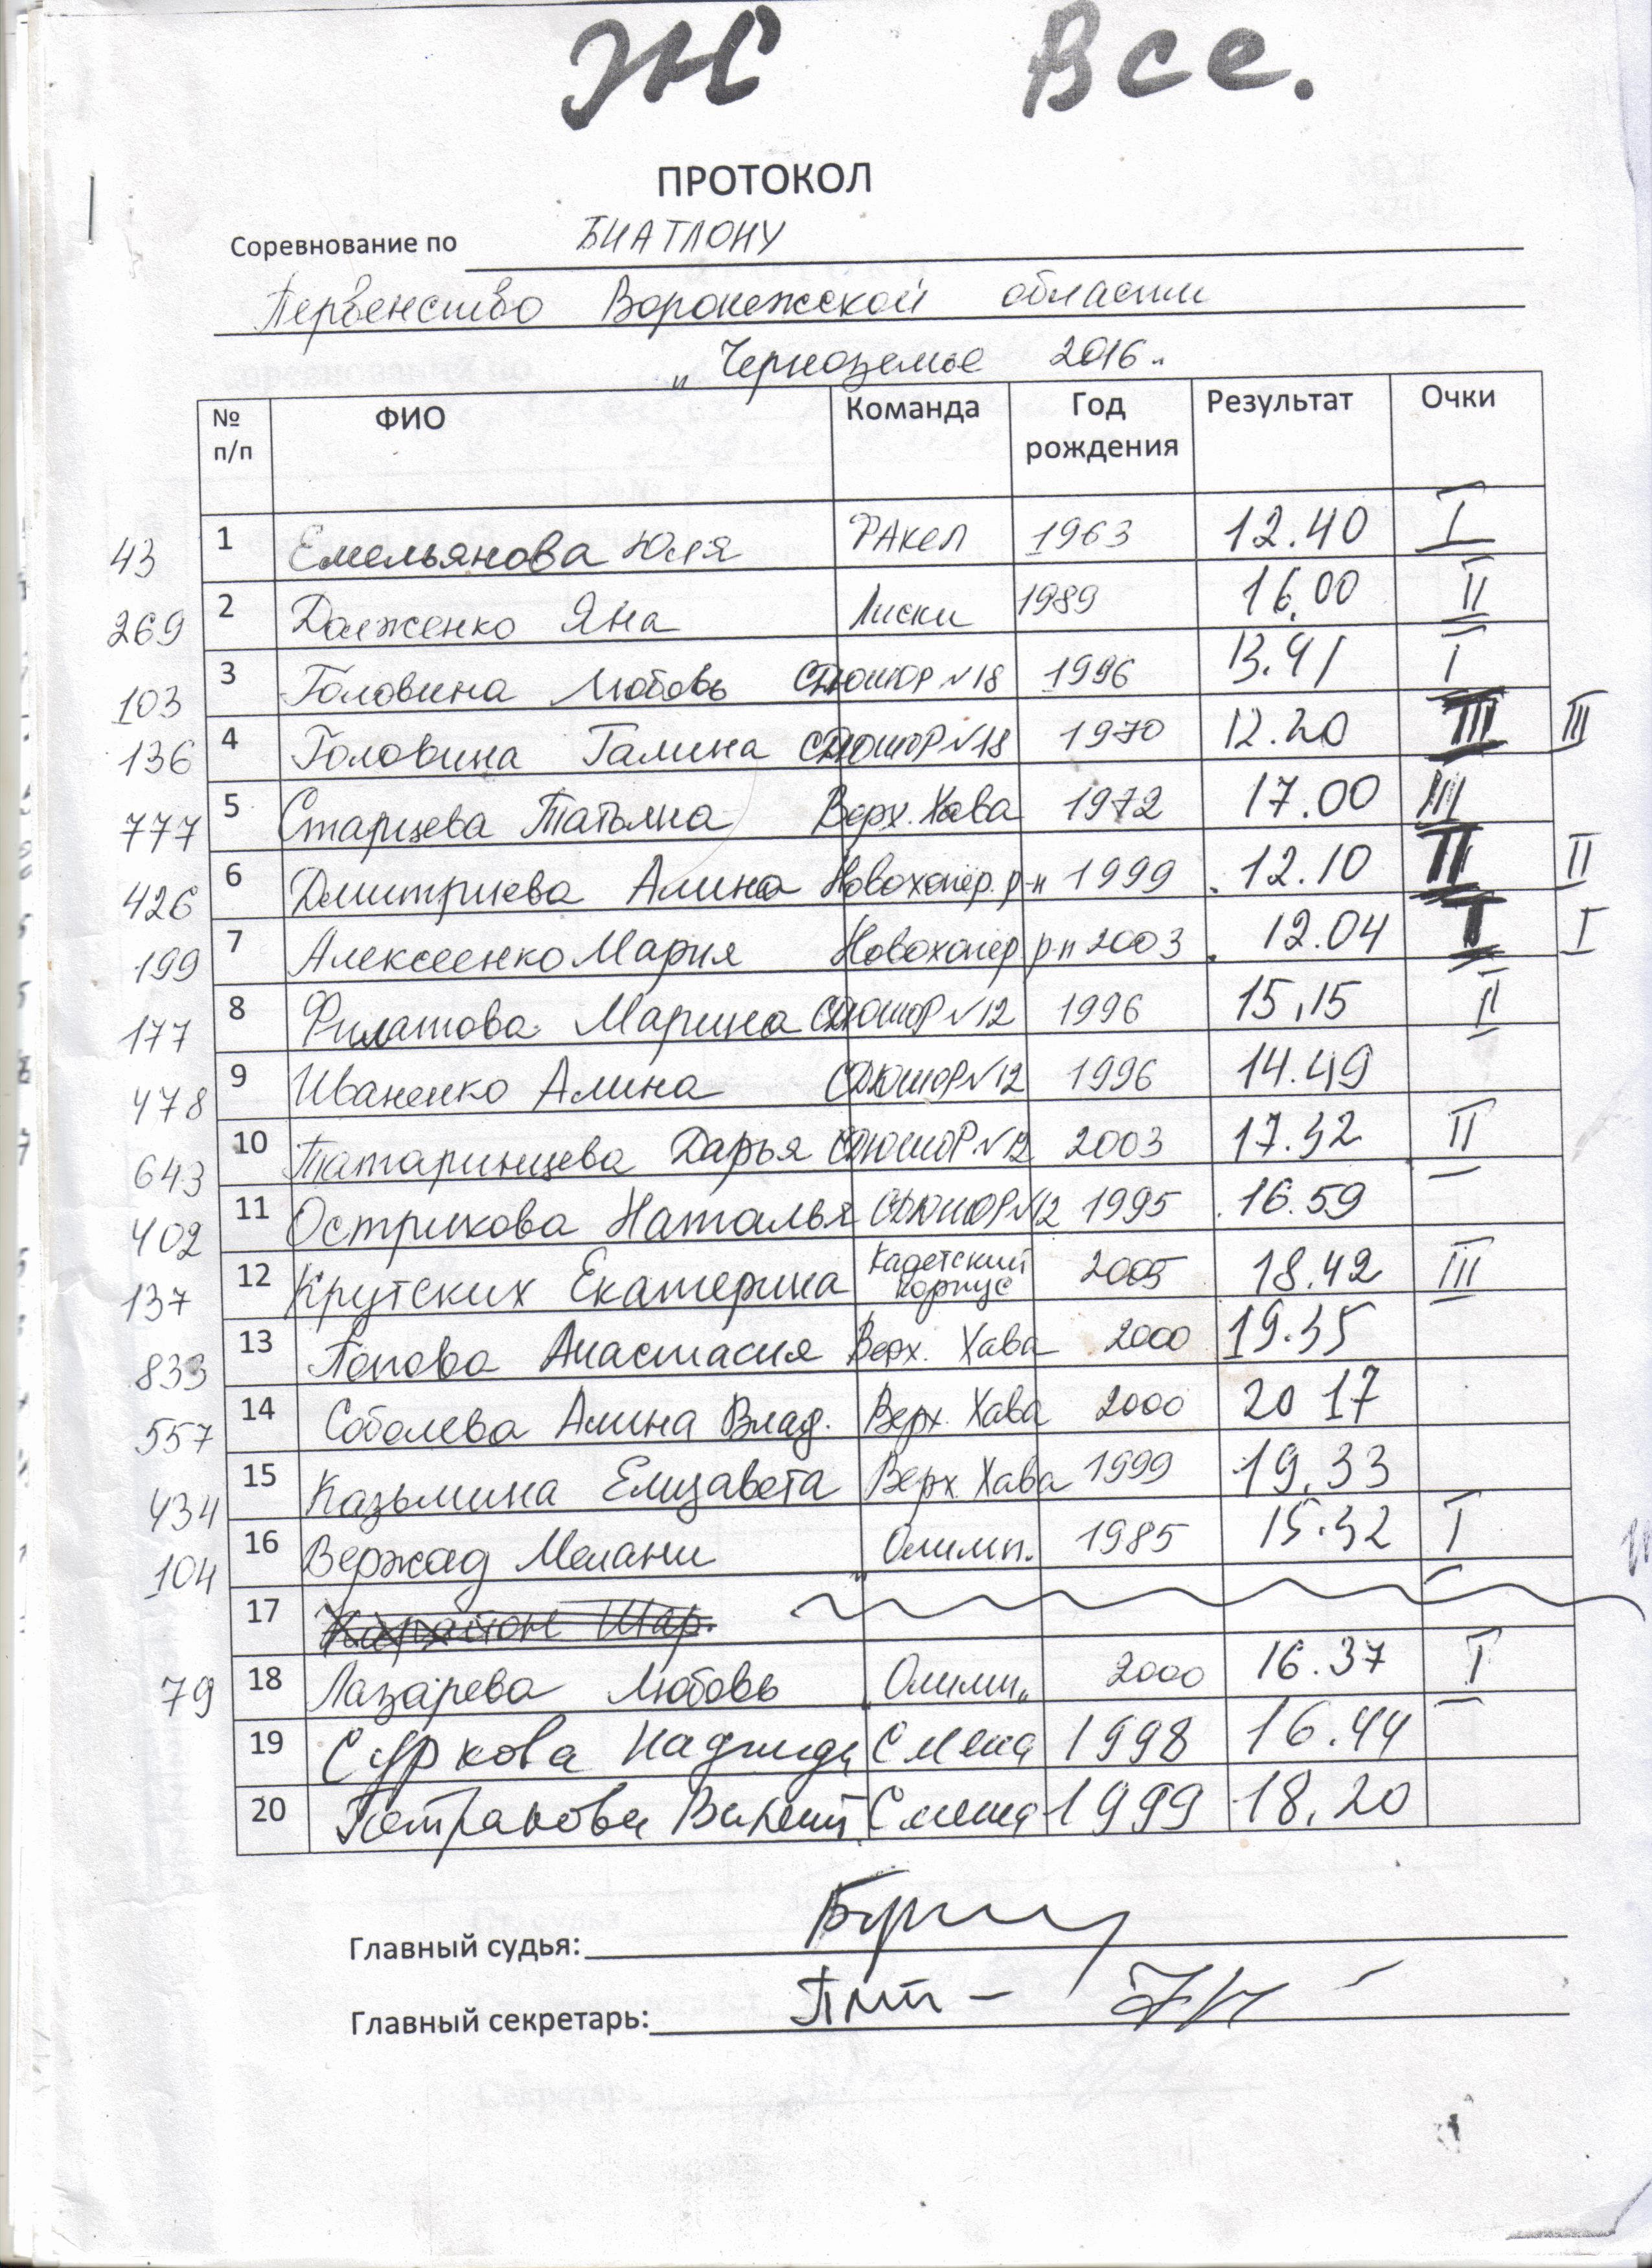 Ж Все.
ПРОТОКОЛ
Соревнование по БИАТЛОНУ
Первенство Воронежской области
„Черноземье 2016"
№ п/п ФИО Команда Год рождения Результат Очки
43 1 Емельянова Юля ФАкел 1963 12.40 I
269 2 Долженко Яна Лиски 1989 16.00 II
103 3 Головина Любовь СДЮШОР №18 1996 13.41 I
136 4 Головина Галина СДЮШОР №18 1970 12.20 III III
777 5 Старцева Татьяна Верх. Хава 1972 17.00 III
426 6 Дмитриева Алина Новохопер. р-н 1999 12.10 II II
199 7 Алексеенко Мария Новохопер р-н 2003 12.04 I I
177 8 Филатова Марина СДЮШОР №12 1996 15,15 II
478 9 Иваненко Алина СДЮШОР №12 1996 14.49
643 10 Татаринцева Дарья СДЮШОР №12 2003 17.32 II
402 11 Острикова Наталья СДЮШОР №12 1995 16.59
137 12 Крутских Екатерина Кадетский корпус 2005 18.42 III
833 13 Попова Анастасия Верх. Хава 2000 19.35
557 14 Соболева Алина Влад. Верх. Хава 2000 20 17
434 15 Казьмина Елизавета Верх Хава 1999 19.33
104 16 Вержад Мелани „Олимп. 1985 15.32 I
17
79 18 Лазарева Любовь „Олимп„ 2000 16.37 I
19 Суркова Надежда Смена 1998 16.44
20 Петракова Смена 1999 18.20
Главный судья:
Главный секретарь: